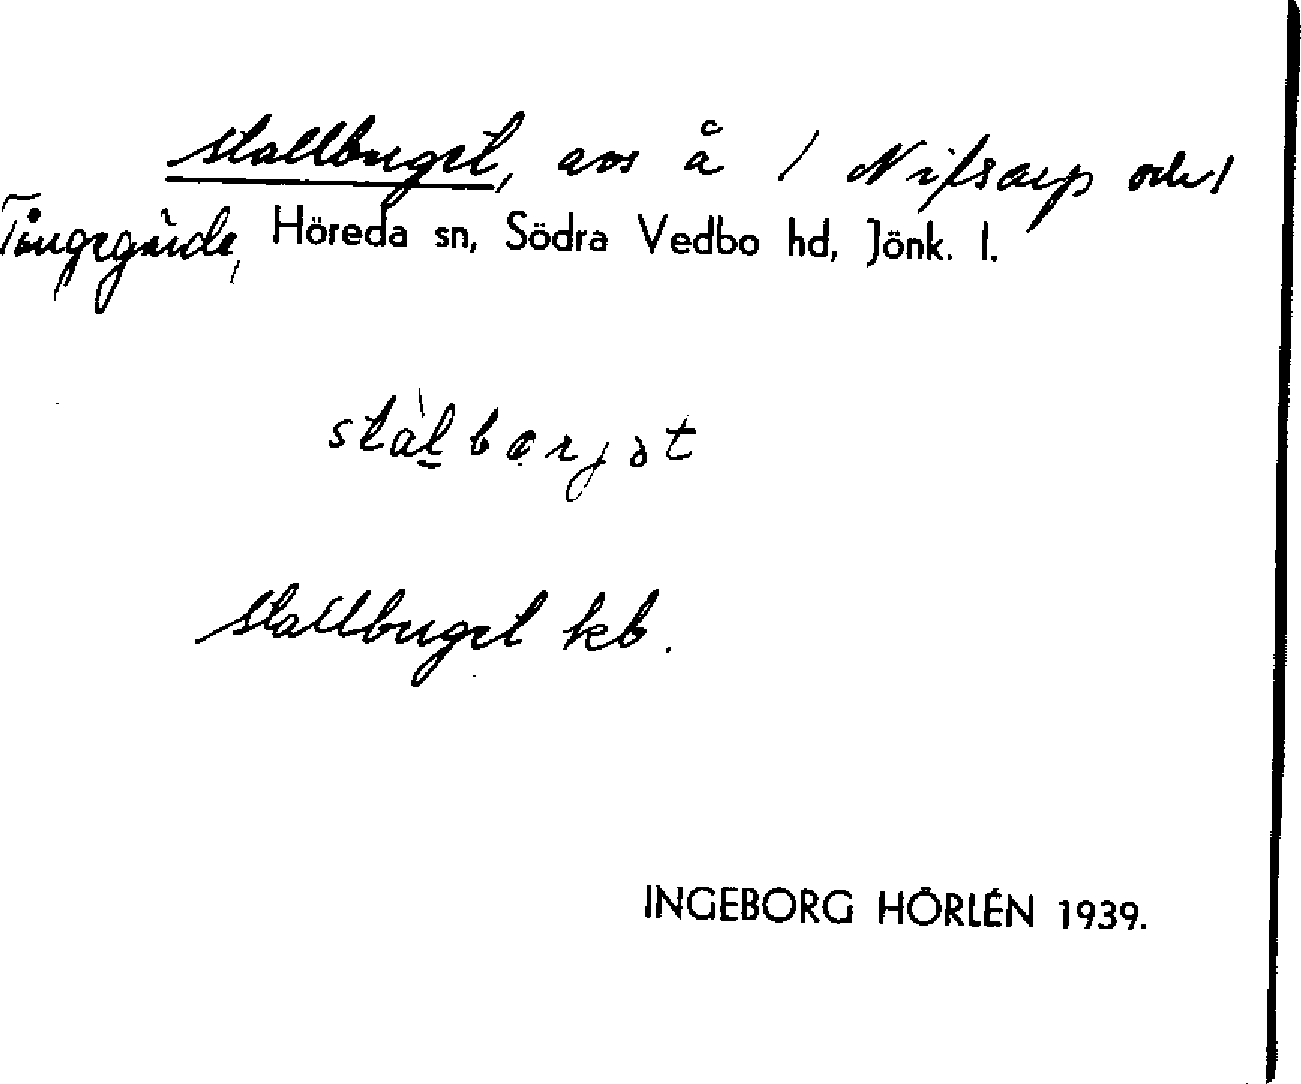 stallbuget, avs å / Nifsarp och /
Tångegärde, Höreda sn, Södra Vedbo hd, Jönk. l.
stallbuget kb.
INGEBORG HÖRLÉN 1939.